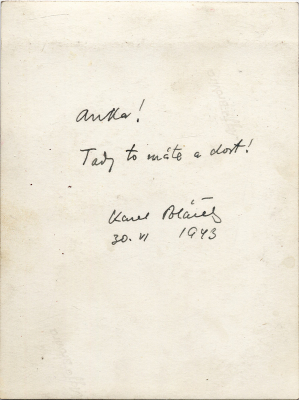 Anka!
Tady to máte a dost!
Karel Poláček
30. VI 1943